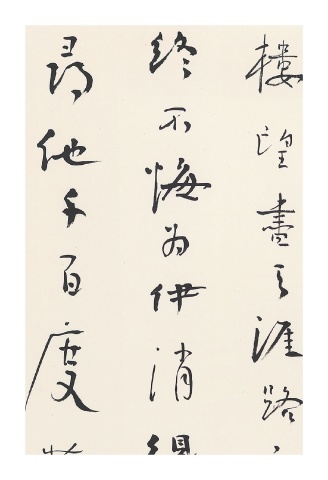 樓望盡天涯路
終不悔为伊消
尋他千百度